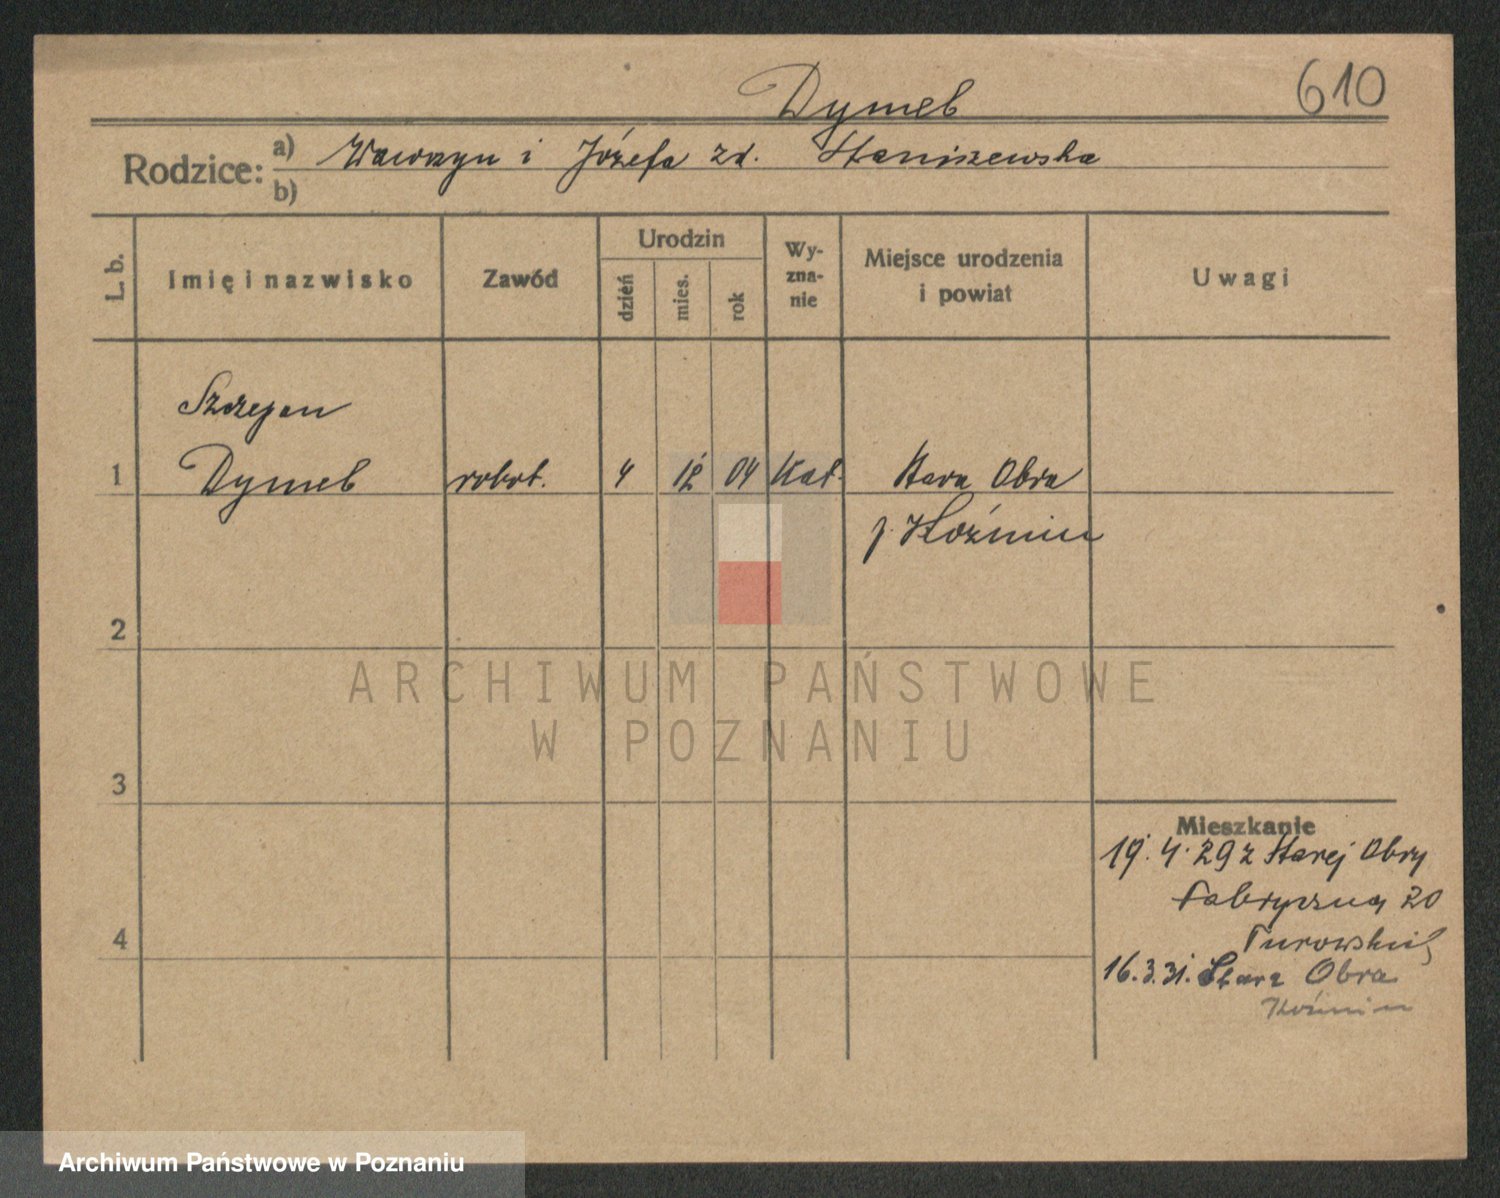 Dymeb
610
Rodzice:
a) Wawrzyn i Józefa zd. Staniszewska
b)
L. b.
Imię i nazwisko
Zawód
Urodzin
dzień
mies.
rok
Wy-
zna-
nie
Miejsce urodzenia
i powiat
Uwagi
Szczepan
1 Dymeb robot. 4 12 04 Kat. Stara Obra
p. Koźmin
2
3
4
Mieszkanie
19. 4. 29 z Starej Obry
Fabryczna 20
16.3.31. Stara Obra
Koźmin
ARCHIWUM PAŃSTWOWE
W POZNANIU
Archiwum Państwowe w Poznaniu